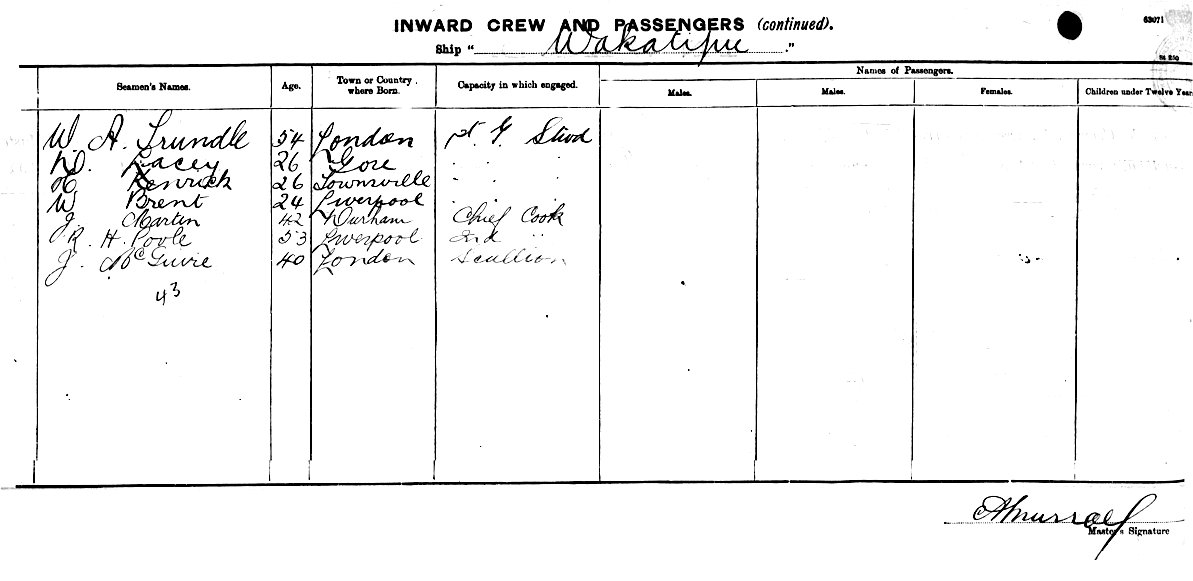 INWARD CREW AND PASSENGERS (continued).
63071
Ship " Wakatipu ."
Names of Passengers.
Seamen's Names. Age. Town or Country where Born. Capacity in which engaged. Males. Males. Females. Children under Twelve Year
W. A. Trundle 54 London St. Stwd
D. Lacey 26 Gore " "
H Kenrick 26 Townsville " "
W Brent 24 Liverpool
J. Martin 42 Durham Chief Cook
R. H. Poole 53 Liverpool 2nd "
J. McGuire 40 London Scullion
43
Master's Signature